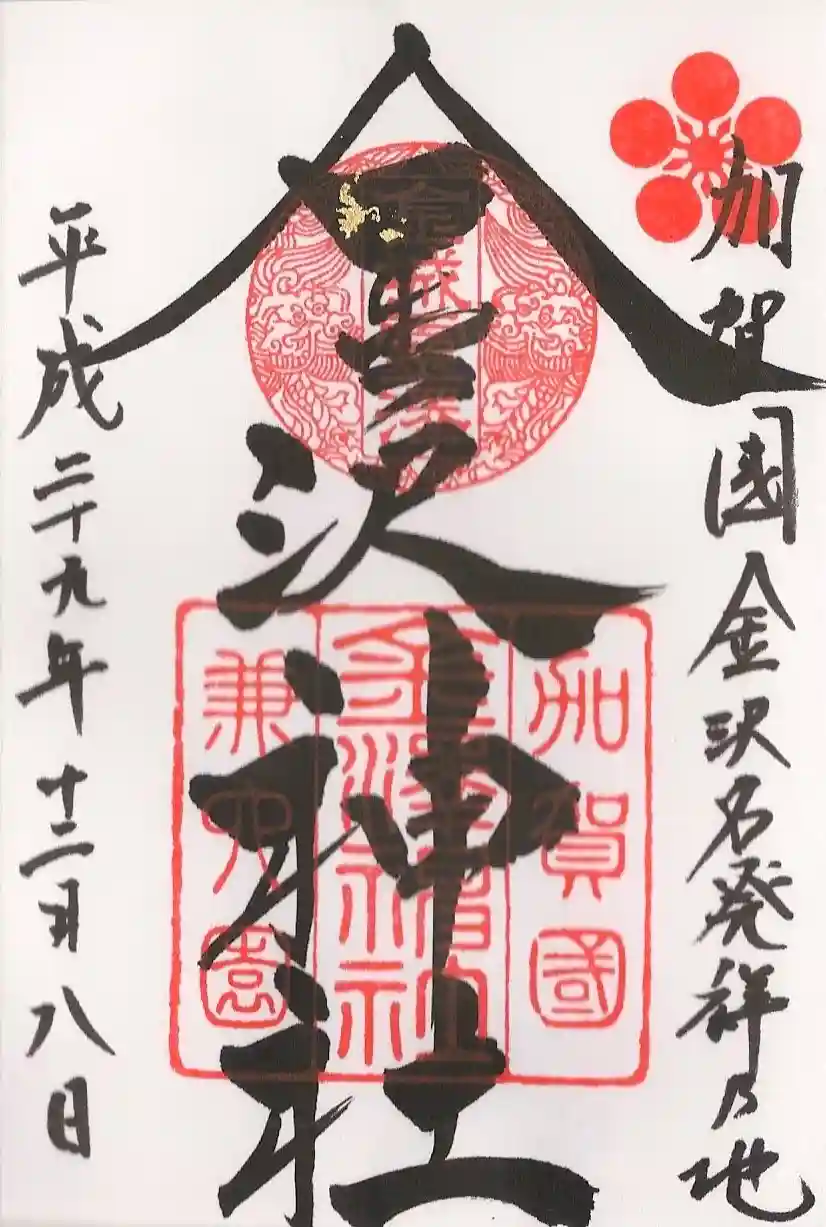 加賀國金沢名発祥乃地
金沢神社
平成二十九年十二月八日
金城霊澤
加賀國
兼六園